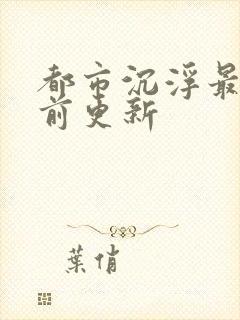 都市沉浮最
前更新
葉俏